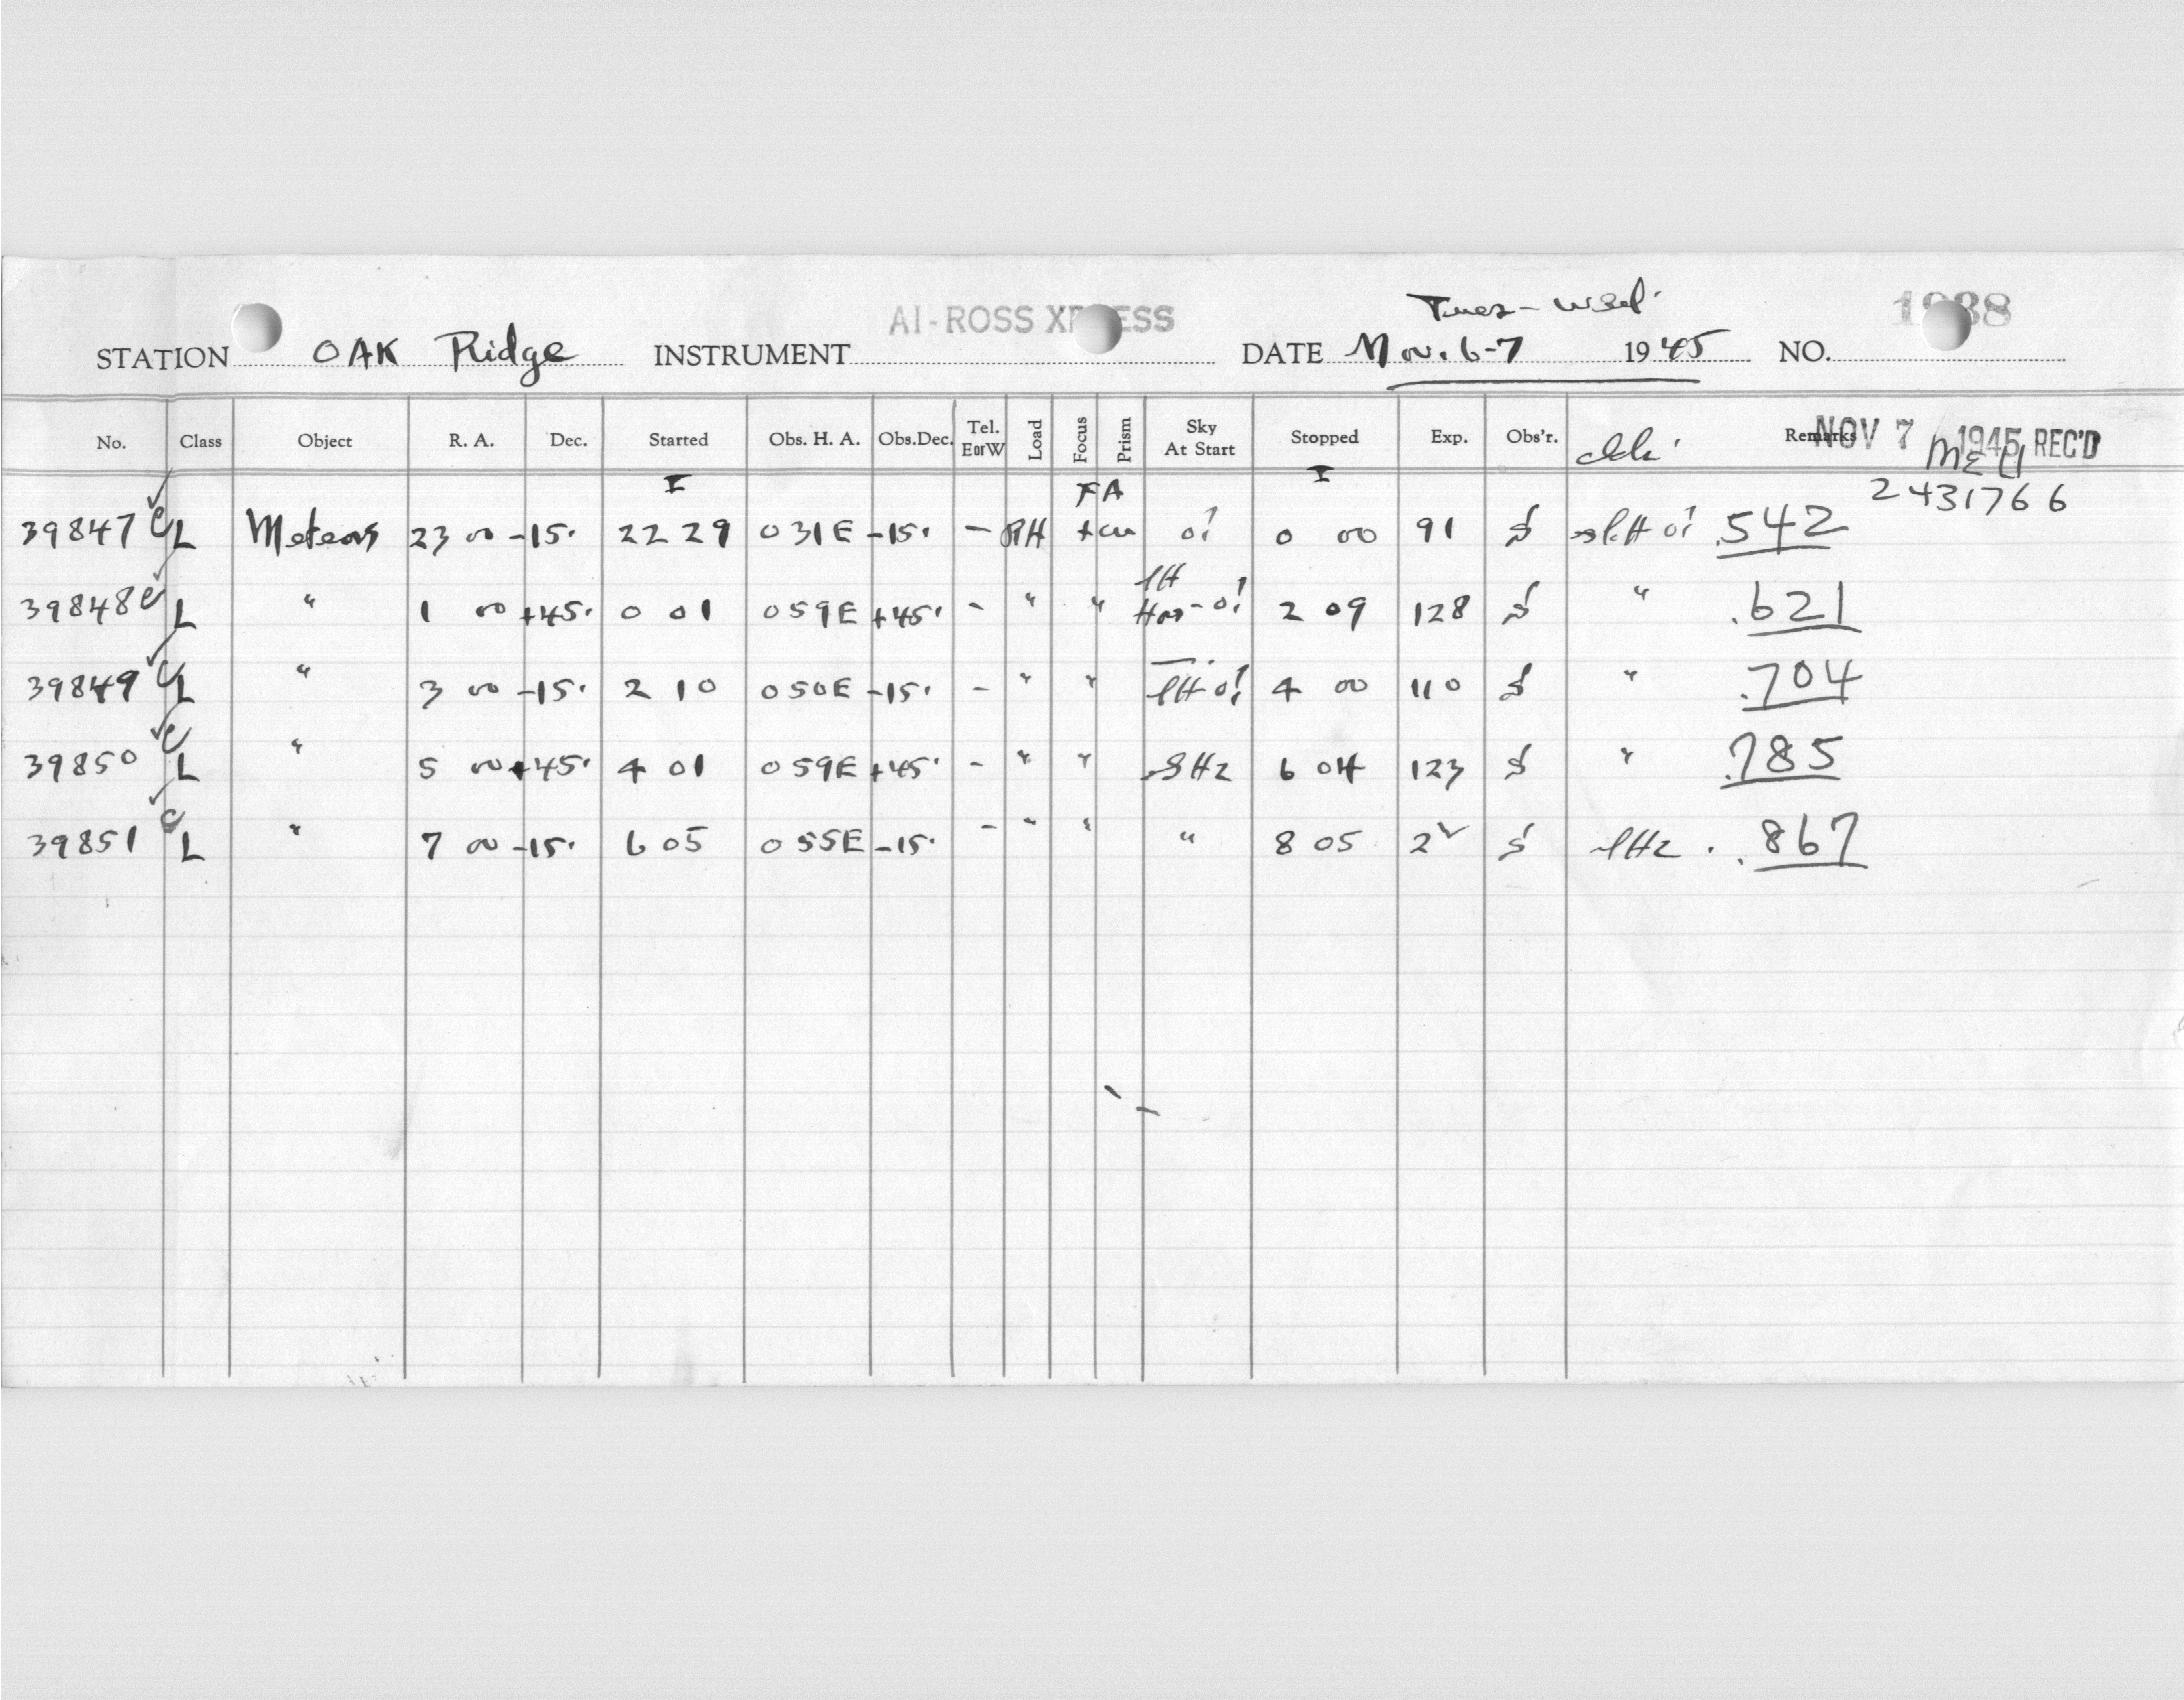 Tues - Wed.
AI-ROSS XPRESS
STATION OAK Ridge INSTRUMENT DATE Nov. 6-7 1945 NO.
No. Class Object R. A. Dec. Started Obs. H. A. Obs.Dec. Tel. EorW Load Focus Prism Sky At Start Stopped Exp. Obs'r. Remarks
NOV 7 1945 REC'D
2431766
FA
39847 L Meteors 23 00 -15. 22 29 0 31E -15. - RH 0! 0 00 91 S .542
39848 L " 1 00 +45. 0 01 0 59E +45. - " " 2 09 128 S " .621
39849 L " 3 00 -15. 2 10 0 50E -15. - " " 4 00 110 S " .704
39850 L " 5 00 +45. 4 01 0 59E +45. - " " SHz 6 04 123 S " .785
39851 L " 7 00 -15. 6 05 0 55E -15. - " " " 8 05 2 S .867